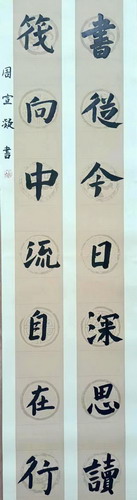 書從今日深思讀
筏向中流自在行
周宣頲書